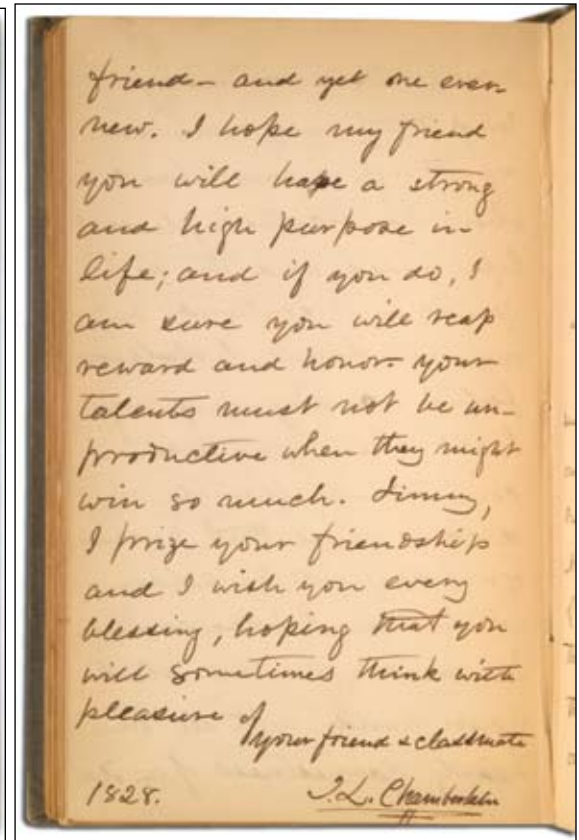 friend – and yet one ever
new. I hope my friend
you will have a strong
and high purpose in
life; and if you do, I
am sure you will reap
reward and honor – your
talents must not be un-
productive when they might
win so much. Jimmy,
I prize your friendship
and I wish you every
blessing, hoping that you
will sometimes think with
pleasure of
your friend & classmate
1828. J. L. Chamberlain